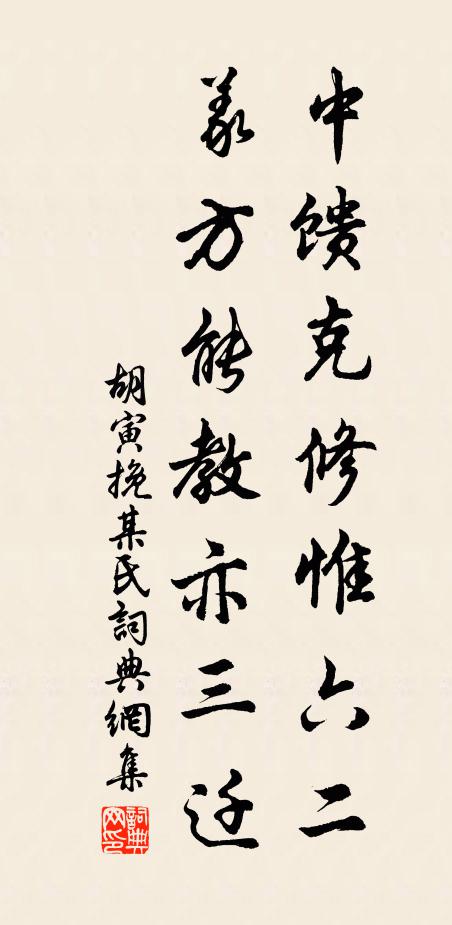 中馈克修惟六二
义方能教亦三迁
胡寅挽某氏詞典網集
詞典网印